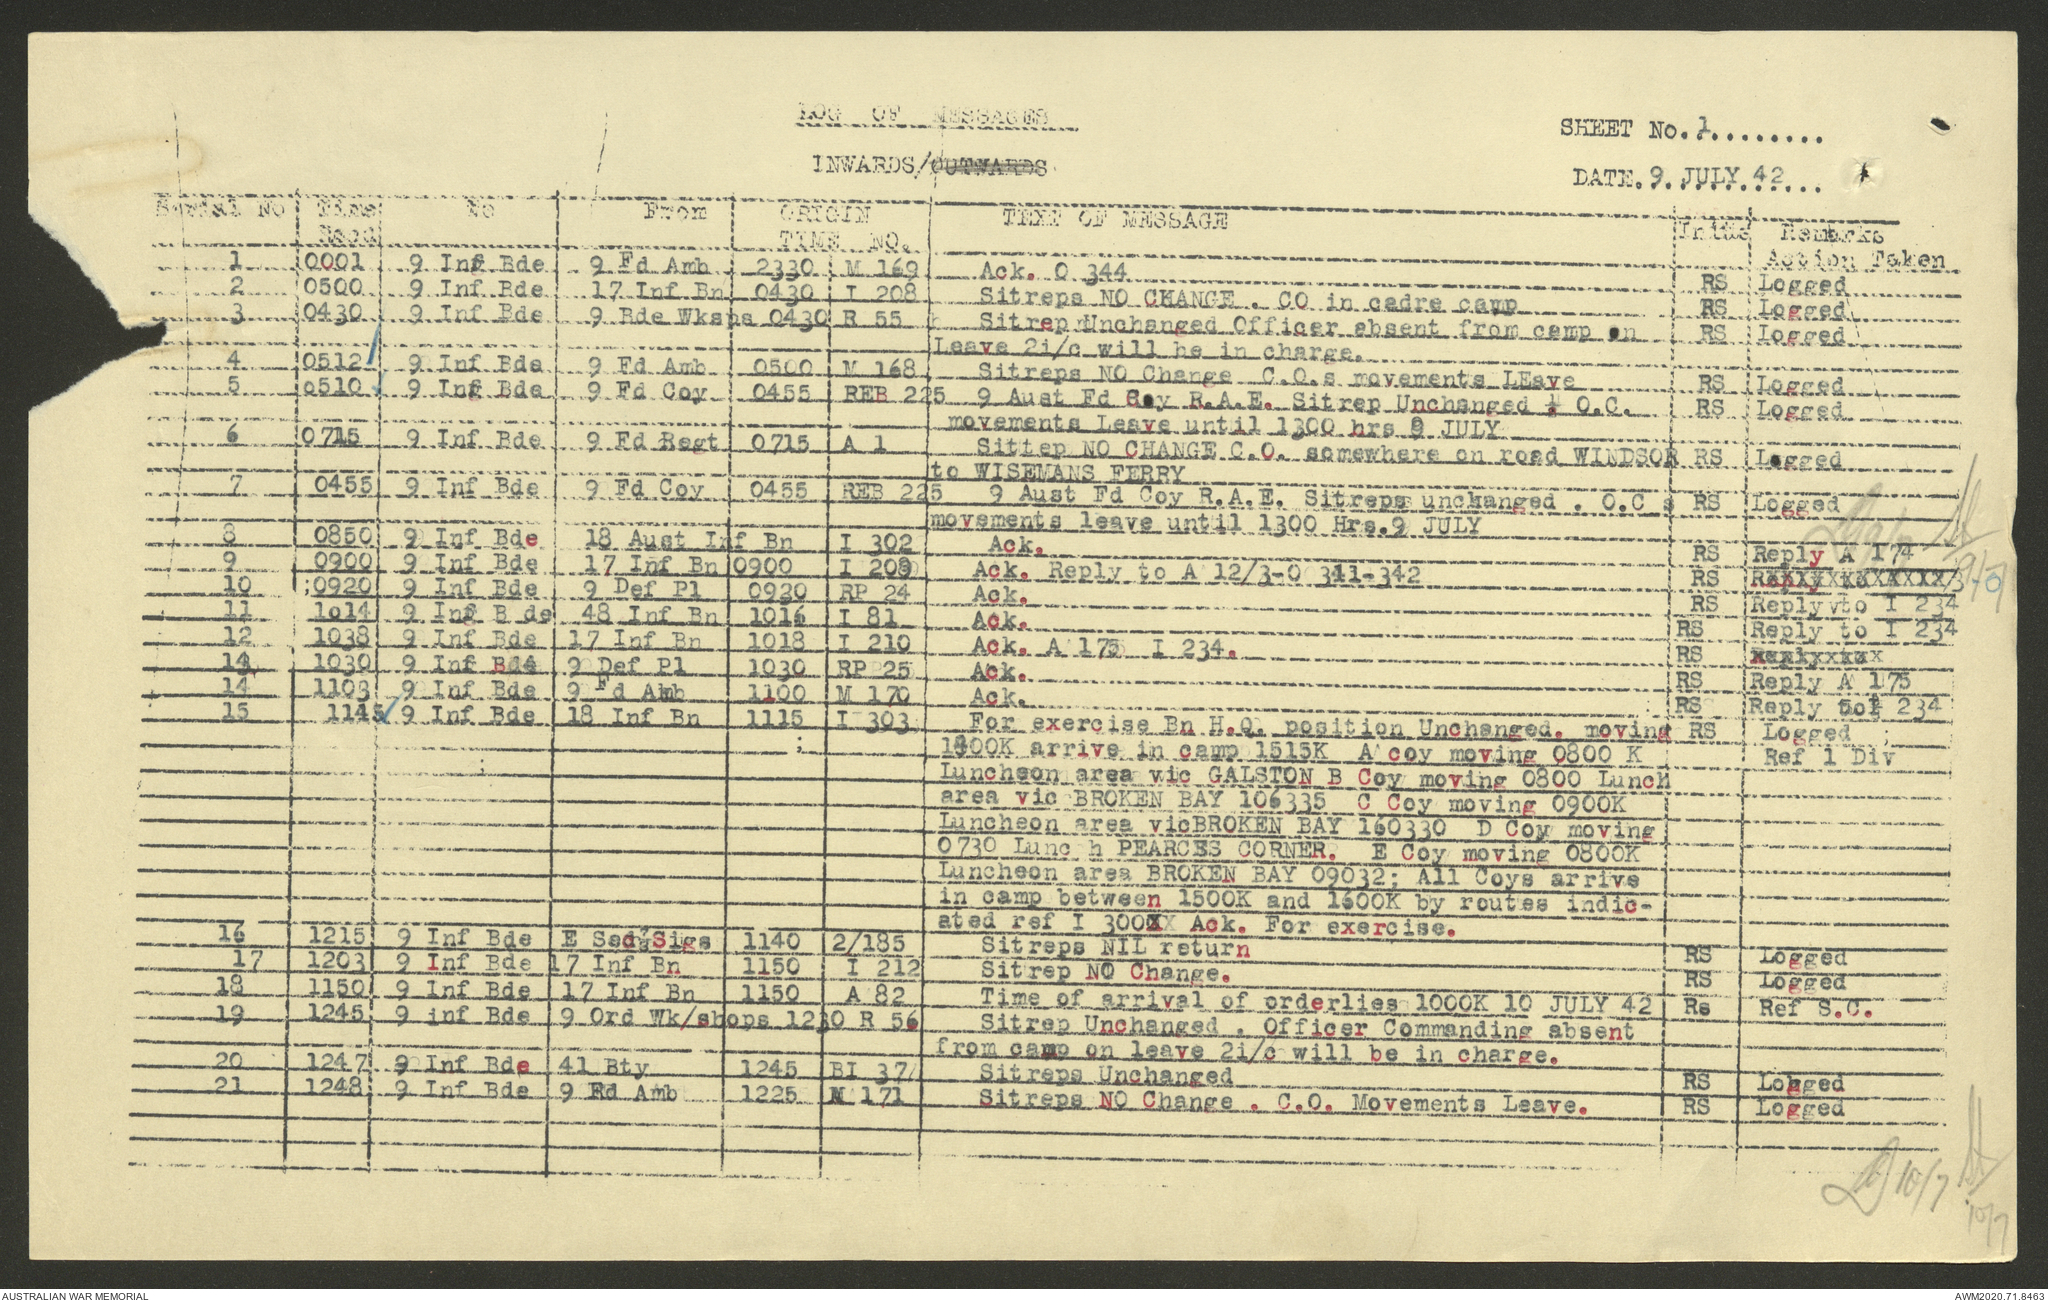 LOG OF MESSAGES
SHEET No. 1........
INWARDS/OUTWARDS
DATE. 9 JULY 42
Serial No Time No From ORIGIN TEXT OF MESSAGE Intls Remarks
Recd TIME NO. Action Taken
1 0001 9 Inf Bde 9 Fd Amb 2330 M 169 Ack. O 344 RS Logged
2 0500 9 Inf Bde 17 Inf Bn 0430 I 208 Sitreps NO CHANGE . CO in cadre camp RS Logged
3 0430 9 Inf Bde 9 Bde Wksps 0430 R 55 Sitrep Unchanged Officer absent from camp on RS Logged
Leave 2i/c will be in charge.
4 0512 9 Inf Bde 9 Fd Amb 0500 M 168 Sitreps NO Change C.O.s movements LEave RS Logged
5 0510 9 Inf Bde 9 Fd Coy 0455 REB 225 9 Aust Fd Coy R.A.E. Sitrep Unchanged . O.C. RS Logged
movements Leave until 1300 hrs 9 JULY
6 0715 9 Inf Bde 9 Fd Regt 0715 A 1 Sittep NO CHANGE C.O. somewhere on road WINDSOR RS Logged
to WISEMANS FERRY
7 0455 9 Inf Bde 9 Fd Coy 0455 REB 225 9 Aust Fd Coy R.A.E. Sitreps unckanged . O.C s RS Logged
movements leave until 1300 Hrs.9 JULY
8 0850 9 Inf Bde 18 Aust Inf Bn I 302 Ack. RS Reply A 174
9 0900 9 Inf Bde 17 Inf Bn 0900 I 209 Ack. Reply to A 12/3-O 341-342 RS
10 0920 9 Inf Bde 9 Def Pl 0920 RP 24 Ack. RS Reply to I 234
11 1014 9 Inf B de 48 Inf Bn 1016 I 81 Ack. RS Reply to I 234
12 1038 9 Inf Bde 17 Inf Bn 1018 I 210 Ack. A 175 I 234. RS
13 1030 9 Inf Bde 9 Def Pl 1030 RP 25 Ack. RS Reply A 175
14 1103 9 Inf Bde 9 Fd Amb 1100 M 170 Ack. RS Reply to I 234
15 1145 9 Inf Bde 18 Inf Bn 1115 I 303 For exercise Bn H.Q. position Unchanged. moving RS Logged
1400K arrive in camp 1515K A coy moving 0800 K Ref 1 Div
Luncheon area vic GALSTON B Coy moving 0800 Lunch
area vic BROKEN BAY 106335 C Coy moving 0900K
Luncheon area vicBROKEN BAY 160330 D Coy moving
0730 Lunc h PEARCES CORNER. E Coy moving 0800K
Luncheon area BROKEN BAY 09032; All Coys arrive
in camp between 1500K and 1600K by routes indic-
ated ref I 300XX Ack. For exercise.
16 1215 9 Inf Bde E Sec Sigs 1140 2/185 Sitreps NIL return RS Logged
17 1203 9 Inf Bde 17 Inf Bn 1150 I 212 Sitrep NO Change. RS Logged
18 1150 9 Inf Bde 17 Inf Bn 1150 A 82 Time of arrival of orderlies 1000K 10 JULY 42 Rs Ref S.C.
19 1245 9 inf Bde 9 Ord Wk/shops 1230 R 56 Sitrep Unchanged . Officer Commanding absent
from camp on leave 2i/c will be in charge.
20 1247 9 Inf Bde 41 Bty 1245 BI 37 Sitreps Unchanged RS Logged
21 1248 9 Inf Bde 9 Fd Amb 1225 M 171 Sitreps NO Change . C.O. Movements Leave. RS Logged
10/7
10/7
AUSTRALIAN WAR MEMORIAL
AWM2020.71.8463